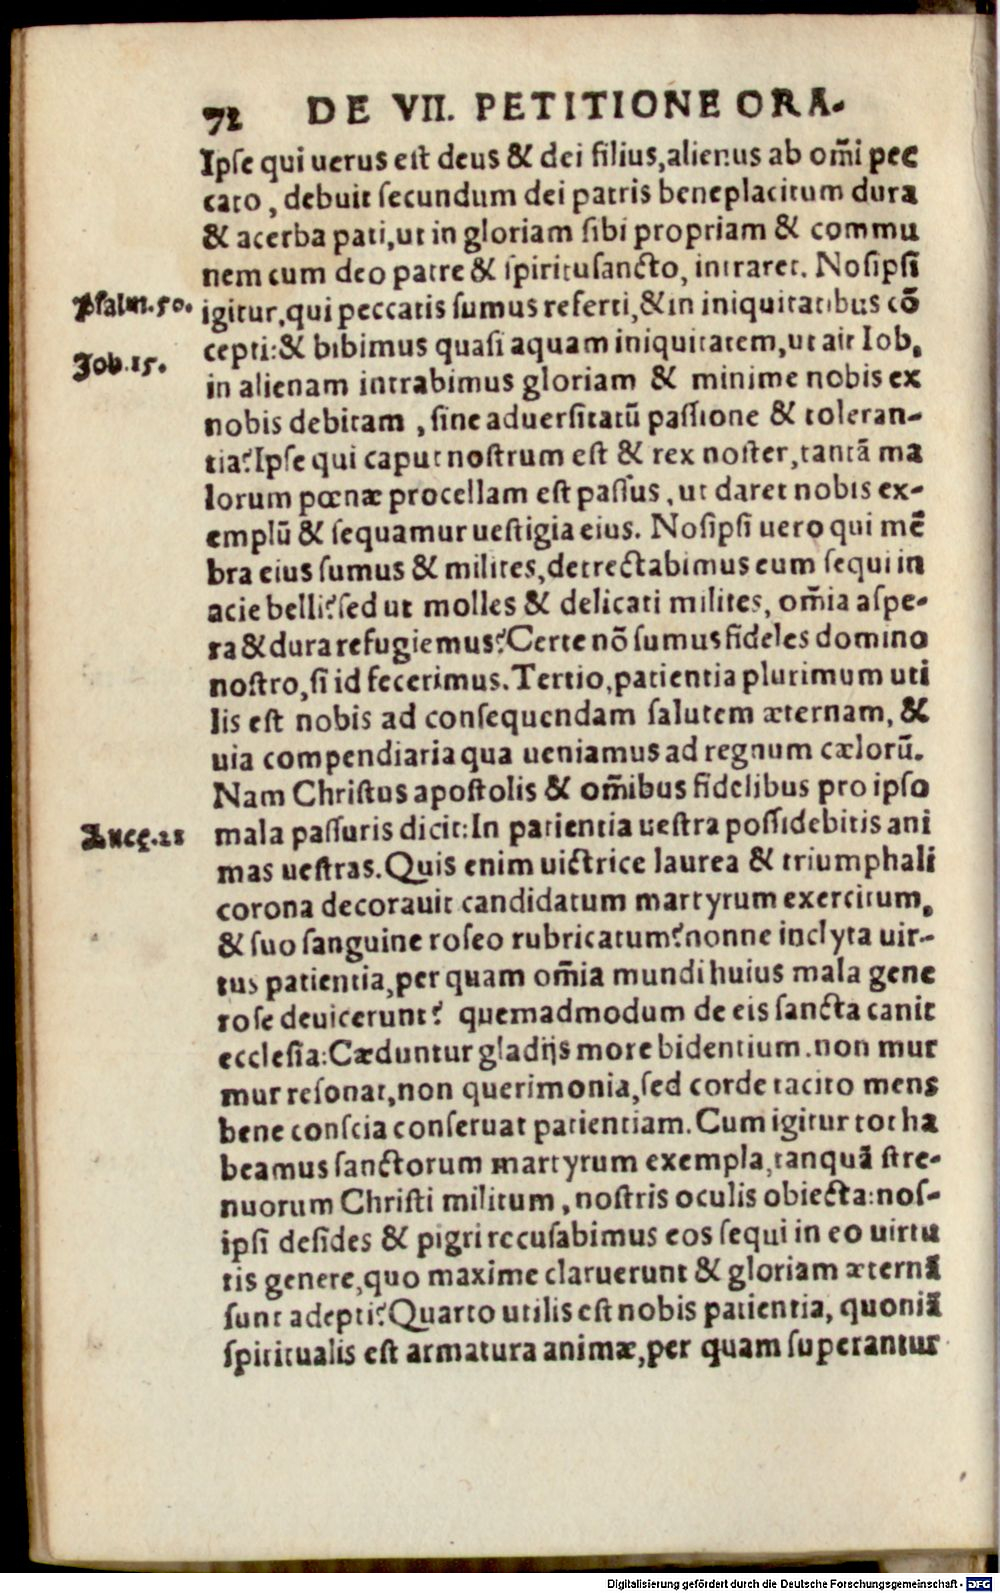 72 DE VII. PETITIONE ORA-
Ipſe qui uerus eſt deus & dei filius, alienus ab om̃i pec
cato, debuit ſecundum dei patris beneplacitum dura
& acerba pati, ut in gloriam ſibi propriam & commu
nem cum deo patre & ſpirituſancto, intraret. Noſipſi
Pſalm.50. igitur, qui peccatis ſumus referti, & in iniquitatibus cō
cepti: & bibimus quaſi aquam iniquitatem, ut ait Iob,
Job.15.
in alienam intrabimus gloriam & minime nobis ex
nobis debitam, ſine aduerſitatū paſſione & toleran-
tia? Ipſe qui caput noſtrum eſt & rex noſter, tantā ma
lorum pœnæ procellam eſt paſſus, ut daret nobis ex-
emplū & ſequamur ueſtigia eius. Noſipſi uero qui mē
bra eius ſumus & milites, detrectabimus eum ſequi in
acie belli? ſed ut molles & delicati milites, om̃ia aſpe-
ra & dura refugiemus? Certe nō ſumus fideles domino
noſtro, ſi id fecerimus. Tertio, patientia plurimum uti
lis eſt nobis ad conſequendam ſalutem æternam, &
uia compendiaria qua ueniamus ad regnum cælorū.
Nam Chriſtus apoſtolis & om̃ibus fidelibus pro ipſo
Lucę.21 mala paſſuris dicit: In patientia ueſtra poſſidebitis ani
mas ueſtras. Quis enim uictrice laurea & triumphali
corona decorauit candidatum martyrum exercitum,
& ſuo ſanguine roſeo rubricatum? nonne inclyta uir-
tus patientia, per quam om̃ia mundi huius mala gene
roſe deuicerunt? quemadmodum de eis ſancta canit
eccleſia: Cæduntur gladijs more bidentium. non mur
mur reſonat, non querimonia, ſed corde tacito mens
bene conſcia conſeruat patientiam. Cum igitur tot ha
beamus ſanctorum martyrum exempla, tanquā ſtre-
nuorum Chriſti militum, noſtris oculis obiecta: noſ-
ipſi deſides & pigri recuſabimus eos ſequi in eo uirtu
tis genere, quo maxime claruerunt & gloriam æternā
ſunt adepti? Quarto utilis eſt nobis patientia, quoniā
ſpiritualis eſt armatura animæ, per quam ſuperantur
Digitalisierung gefördert durch die Deutsche Forschungsgemeinschaft - DFG